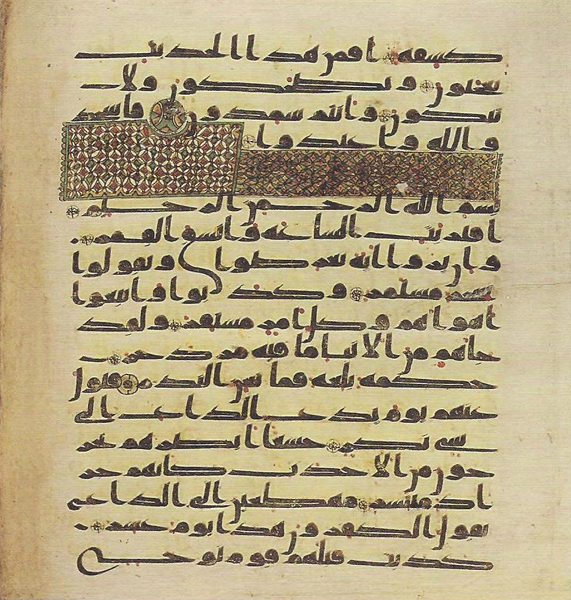 كشفه افمن هدا الحديث
تعجبون وتضحكون ولا
تبكون وانتم سمدون فاسجد
وا لله واعبدوا
بسم الله الرحمن الرحيم
اقتربت الساعه وانشق القمر
وان يروا ايه يعرضوا ويقولوا
سحر مستمر وكذبوا واتبعوا
اهواهم وكل امر مستقر ولقد
جاهم من الانبا ما فيه مزدجر
حكمه بلغه فما تغن النذر فتول
عنهم يوم يدع الداع الى
شى نكر خشعا ابصرهم يخر
جون من الاجدث كانهم جر
اد منتشر مهطعين الى الداع
يقول الكفرون هذا يوم عسر
كذبت قبلهم قوم نوح